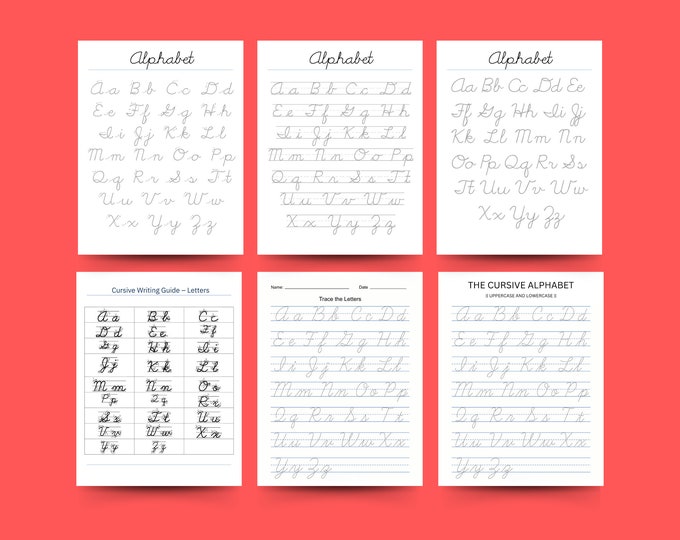 Alphabet
Aa Bb Cc Dd
Ee Ff Gg Hh
Ii Jj Kk Ll
Mm Nn Oo Pp
Qq Rr Ss Tt
Uu Vv Ww
Xx Yy Zz
Alphabet
Aa Bb Cc Dd
Ee Ff Gg Hh
Ii Jj Kk Ll
Mm Nn Oo Pp
Qq Rr Ss Tt
Uu Vv Ww
Xx Yy Zz
Alphabet
Aa Bb Cc Dd Ee
Ff Gg Hh Ii Jj
Kk Ll Mm Nn
Oo Pp Qq Rr Ss
Tt Uu Vv Ww
Xx Yy Zz
Cursive Writing Guide – Letters
Aa Bb Cc
Dd Ee Ff
Gg Hh Ii
Jj Kk Ll
Mm Nn Oo
Pp Qq Rr
Ss Tt Uu
Vv Ww Xx
Yy Zz
Name: Date
Trace the Letters
Aa Bb Cc Dd
Ee Ff Gg Hh
Ii Jj Kk Ll
Mm Nn Oo Pp
Qq Rr Ss Tt
Uu Vv Ww Xx
Yy Zz
THE CURSIVE ALPHABET
:: UPPERCASE AND LOWERCASE ::
Aa Bb Cc Dd
Ee Ff Gg Hh
Ii Jj Kk Ll
Mm Nn Oo Pp
Qq Rr Ss Tt
Uu Vv Ww Xx
Yy Zz